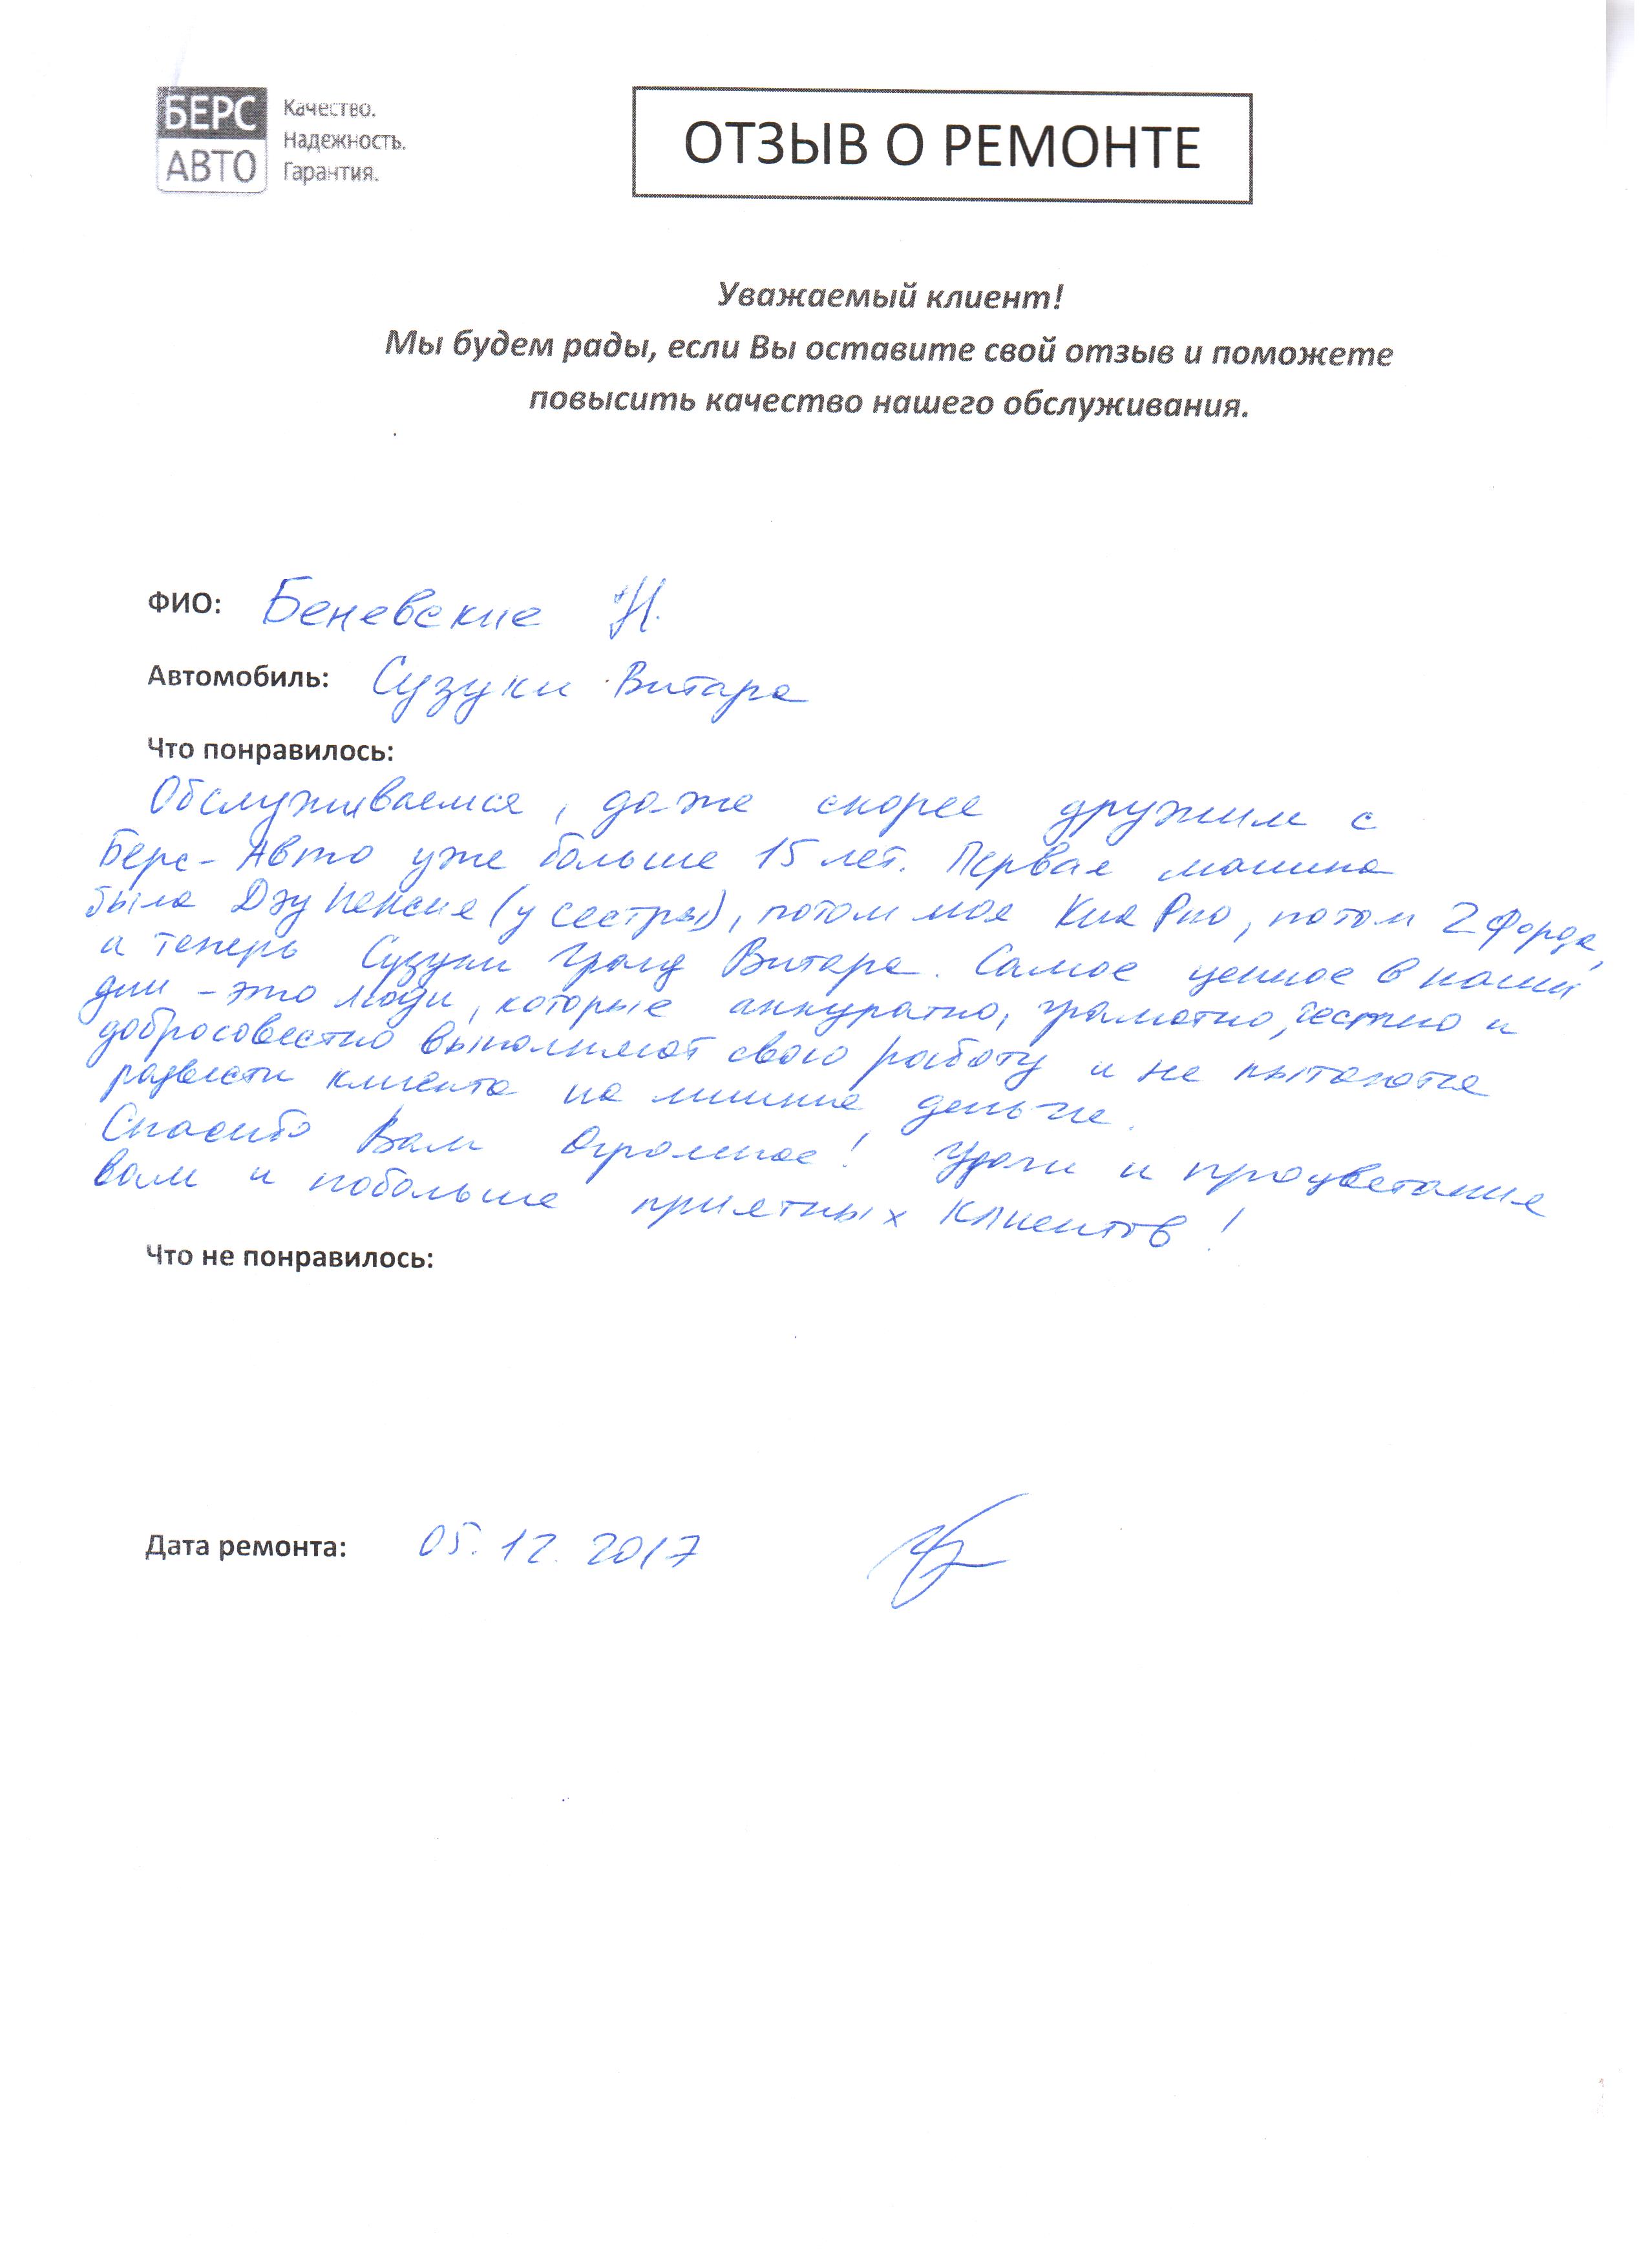 БЕРС
АВТО
Качество.
Надежность.
Гарантия.
ОТЗЫВ О РЕМОНТЕ
Уважаемый клиент!
Мы будем рады, если Вы оставите свой отзыв и поможете
повысить качество нашего обслуживания.
ФИО: Беневские Н.
Автомобиль: Сузуки Витара
Что понравилось:
Обслуживаемся, даже скорее дружим с
Берс-Авто уже больше 15 лет. Первая машина
была Дэу Нексия (у сестры), потом моя Киа Рио, потом 2 Форда,
а теперь Сузуки Гранд Витара. Самое ценное в наши
дни - это люди, которые аккуратно, грамотно, честно и
добросовестно выполняют свою работу и не пытаются
развести клиента на лишние деньги.
Спасибо Вам Огромное! Удачи и процветания
вам и побольше приятных клиентов!
Что не понравилось:
Дата ремонта: 05.12.2017